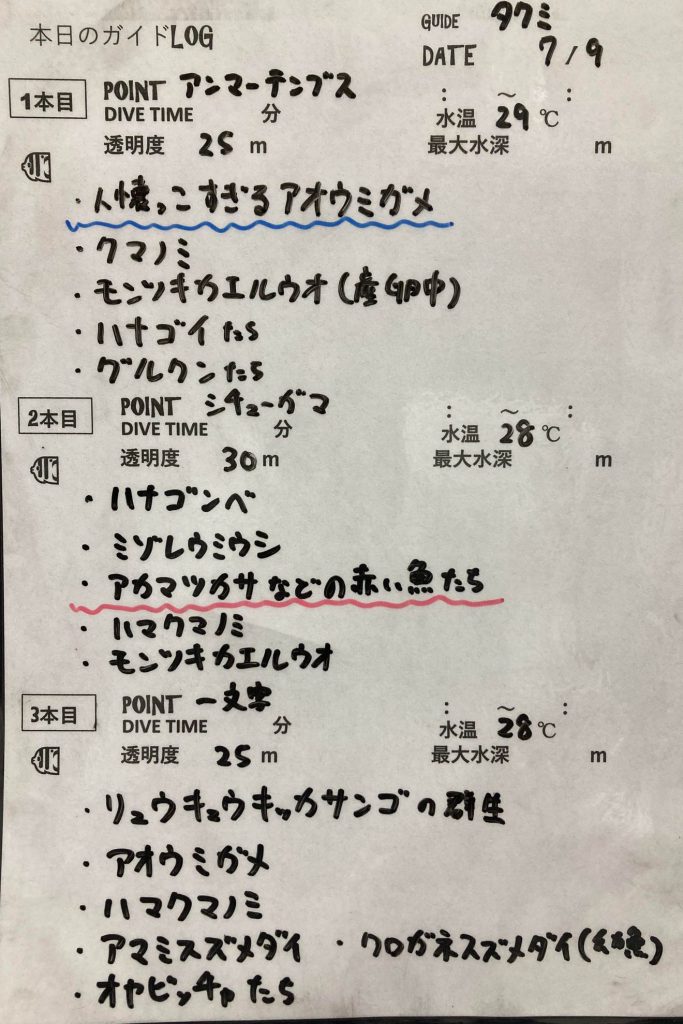 本日のガイドLOG
GUIDE タクミ
DATE 7/9
1本目 POINT アンマーテンブス
DIVE TIME 分 : ～ :
水温 29℃
透明度 25m 最大水深 m
・人懐っこすぎるアオウミガメ
・クマノミ
・モンツキカエルウオ(産卵中)
・ハナゴイたち
・グルクンたち
2本目 POINT シチューガマ
DIVE TIME 分 : ～ :
水温 28℃
透明度 30m 最大水深 m
・ハナゴンベ
・ミゾレウミウシ
・アカマツカサなどの赤い魚たち
・ハマクマノミ
・モンツキカエルウオ
3本目 POINT 一文字
DIVE TIME 分 : ～ :
水温 28℃
透明度 25m 最大水深 m
・リュウキュウキッカサンゴの群生
・アオウミガメ
・ハマクマノミ
・アマミスズメダイ ・クロガネスズメダイ(幼魚)
・オヤビッチャたち